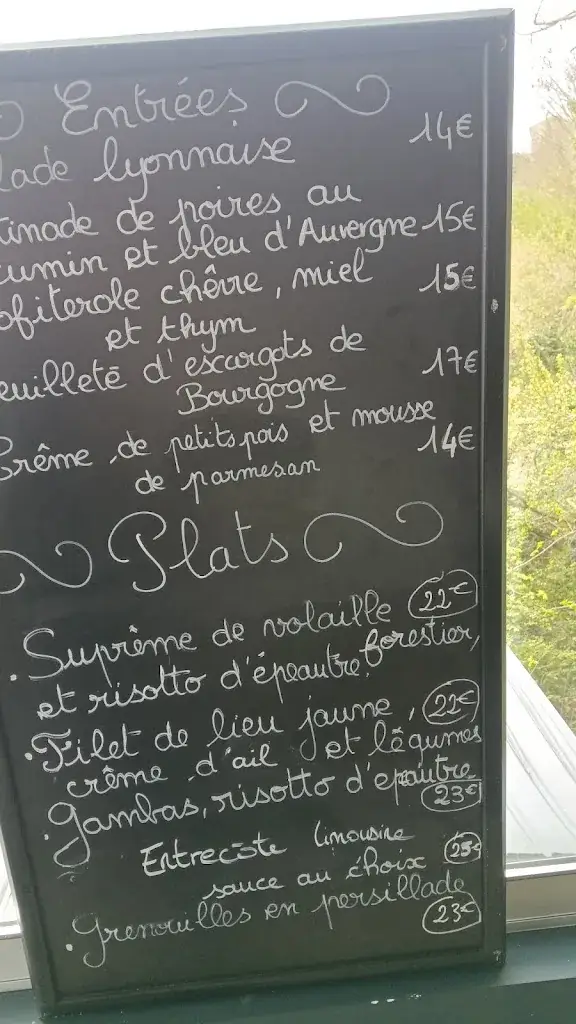 Entrées
lade lyonnaise 14€
tinade de poires au
cumin et bleu d'Auvergne 15€
ofiterole chêvre, miel 15€
et thym
euilleté d'escargots de 17€
Bourgogne
Crême de petits pois et mousse
de parmesan 14€
Plats
. Suprême de volaille 22€
et risotto d'épeautre forestier,
. Filet de lieu jaune, 22€
crême d'ail et légumes
. Gambas, risotto d'epautre 23€
Entrecôte limousine
sauce au choix 25€
. Grenouilles en persillade 23€